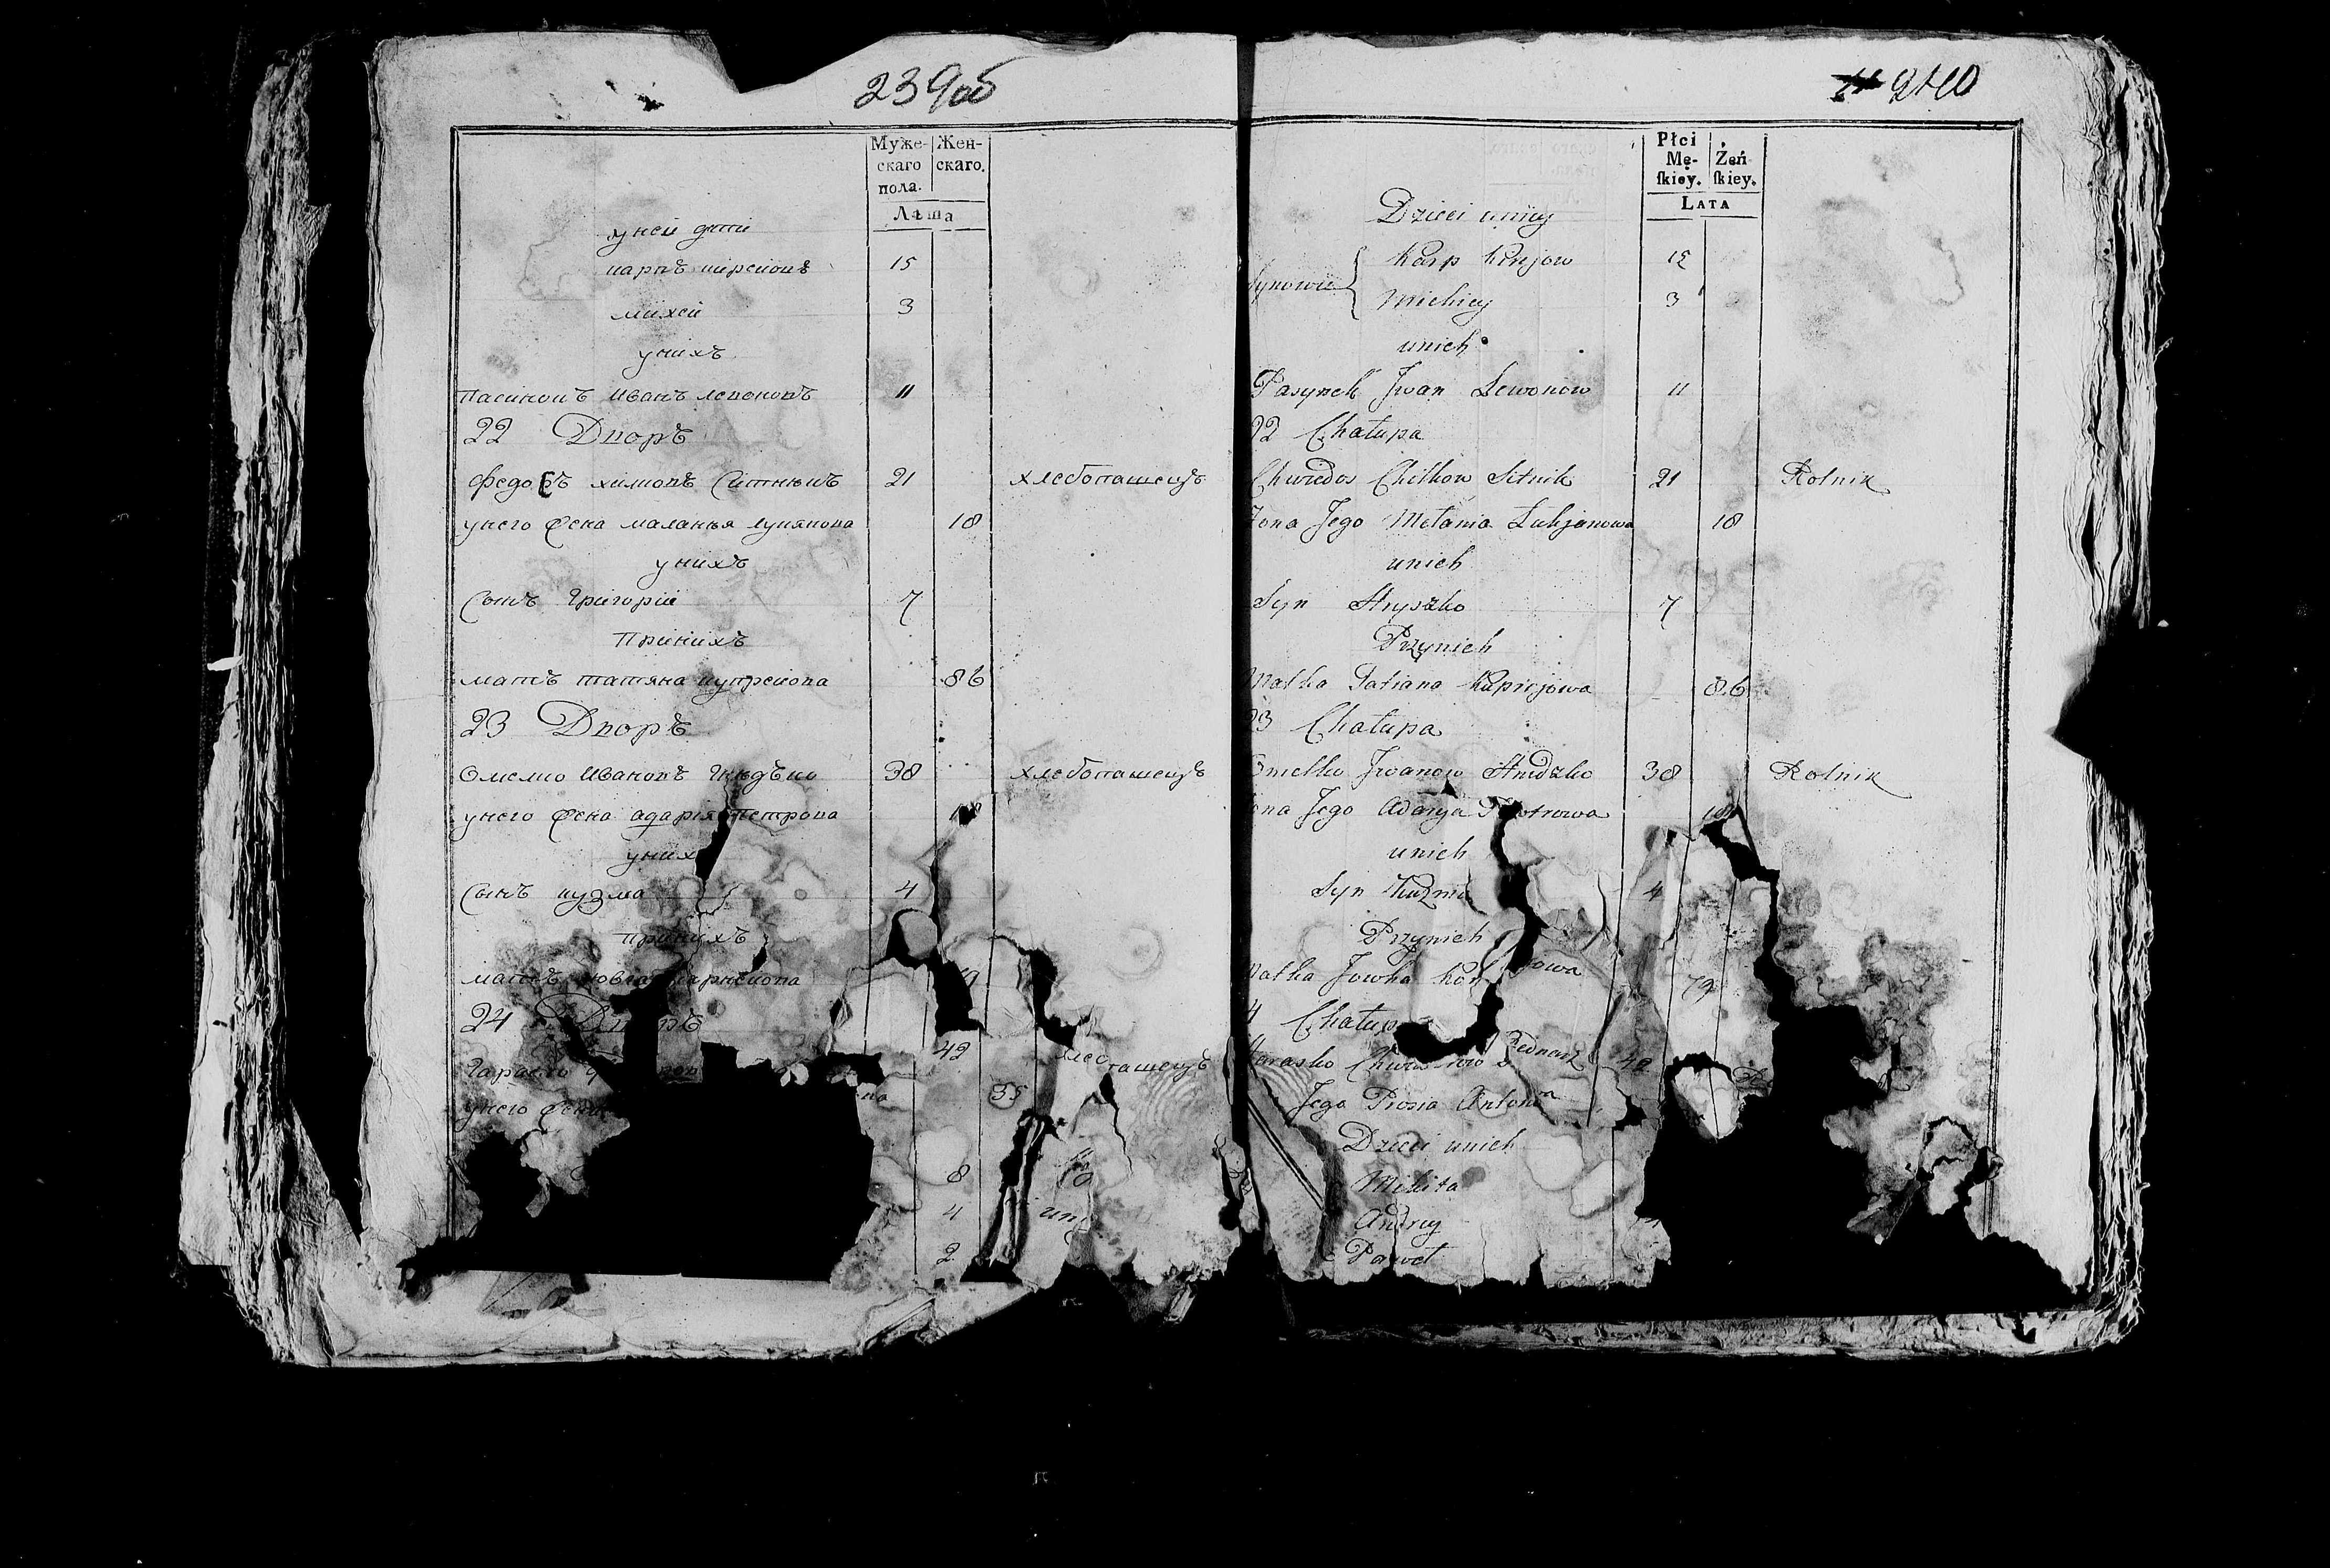 239об
Муже-
скаго
пола.
Жен-
скаго.
Лѣта
уней дети
карпъ кирѣевъ 15
михей 3
унихъ
пасинокъ иванъ левоновъ 11
22 Дворъ
Федосъ хилковъ Ситникъ 21 хлебопашецъ
унего жена маланья лукянова 18
унихъ
Сынъ Григорій 7
Принихъ
мать татяна купреева 86
23 Дворъ
Омелко Ивановъ 38 хлебопашецъ
унего жена адарія Петрова
уних
Сынъ кузма 4
принихъ
мать
24 Дворъ
42
унего жена 35
8
4
2
240
Płci
Mę-
skiey.
Żeń-
skiey.
LATA
Dzieci uniey
Synowie Karp Kirijow 15
Michiey 3
unich
Pasynek Jwan Lewonow 11
22 Chałupa
Chwedos Chilkow Sitnik 21 Rolnik
Zona Jego Melania Lukjanowa 18
unich
Syn Hryszko 7
Przynich
Matka Tatiana Kupriejowa 86
23 Chałupa
Omelko Jwanow Hnidzko 38 Rolnik
Zona Jego Adarya Piotrowa 18
unich
Syn Kuzma 4
Przynich
Matka Jowha 79
Chałup
Harasko Bednarz 42
Jego Prosia Antonowa
Dzieci unich
Mikita
Andrey
Paweł